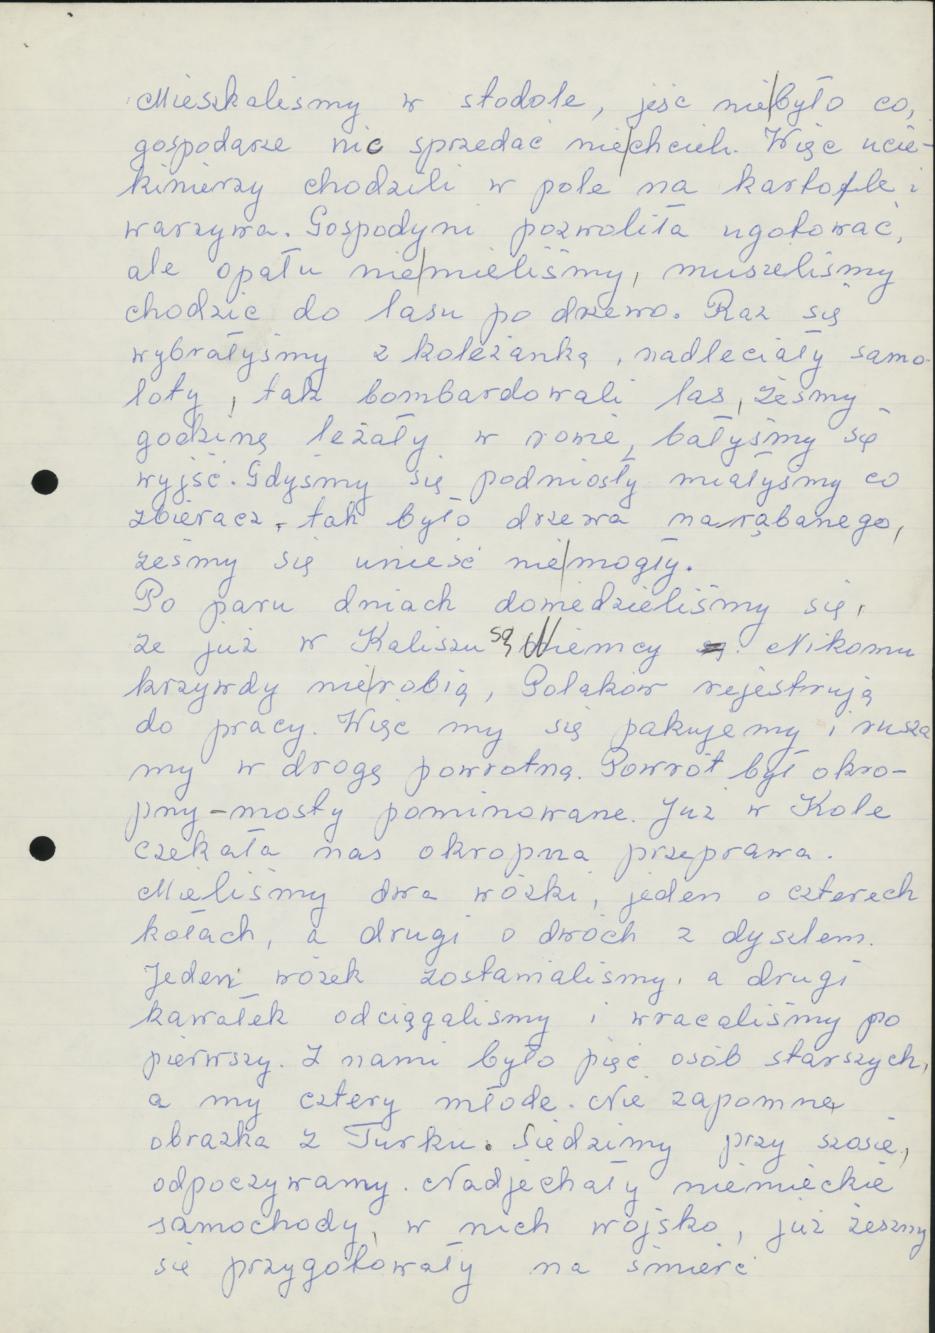 Mieszkaliśmy w stodole, jeść nie|było co,
gospodarze nic sprzedać nie|chcieli. Więc ucie-
kinierzy chodzili w pole na kartofle i
warzywa. Gospodyni pozwoliła ugotować,
ale opału nie|mieliśmy, muszeliśmy
chodzić do lasu po drzewo. Raz się
wybrałyśmy z koleżanką, nadleciały samo-
loty, tak bombardowali las, żeśmy
godzinę leżały w rowie, bałyśmy się
wyjść. Gdyśmy się podniosły miałyśmy co
zbieracz, tak było drzewa narąbanego,
żeśmy się unieść nie|mogły.
Po paru dniach dowiedzieliśmy się,
że już w Kaliszu są Niemcy. Nikomu
krzywdy nie|robią, Polaków rejestrują
do pracy. Więc my się pakujemy i rusza
my w drogę powrotną. Powrót był okro-
pny - mosty pominowane. Już w Kole
czekała nas okropna przeprawa.
Mieliśmy dwa wózki, jeden o czterech
kołach, a drugi o dwóch z dyszlem.
Jeden wózek zostawialismy, a drugi
kawałek odciągaliśmy i wracaliśmy po
pierwszy. Z nami było pięć osób starszych,
a my cztery młode. Nie zapomnę
obrazka z Turku. Siedzimy przy szosie,
odpoczywamy. Nadjechały niemieckie
samochody, w nich wojsko, już żeśmy
się przygotowały na śmierć